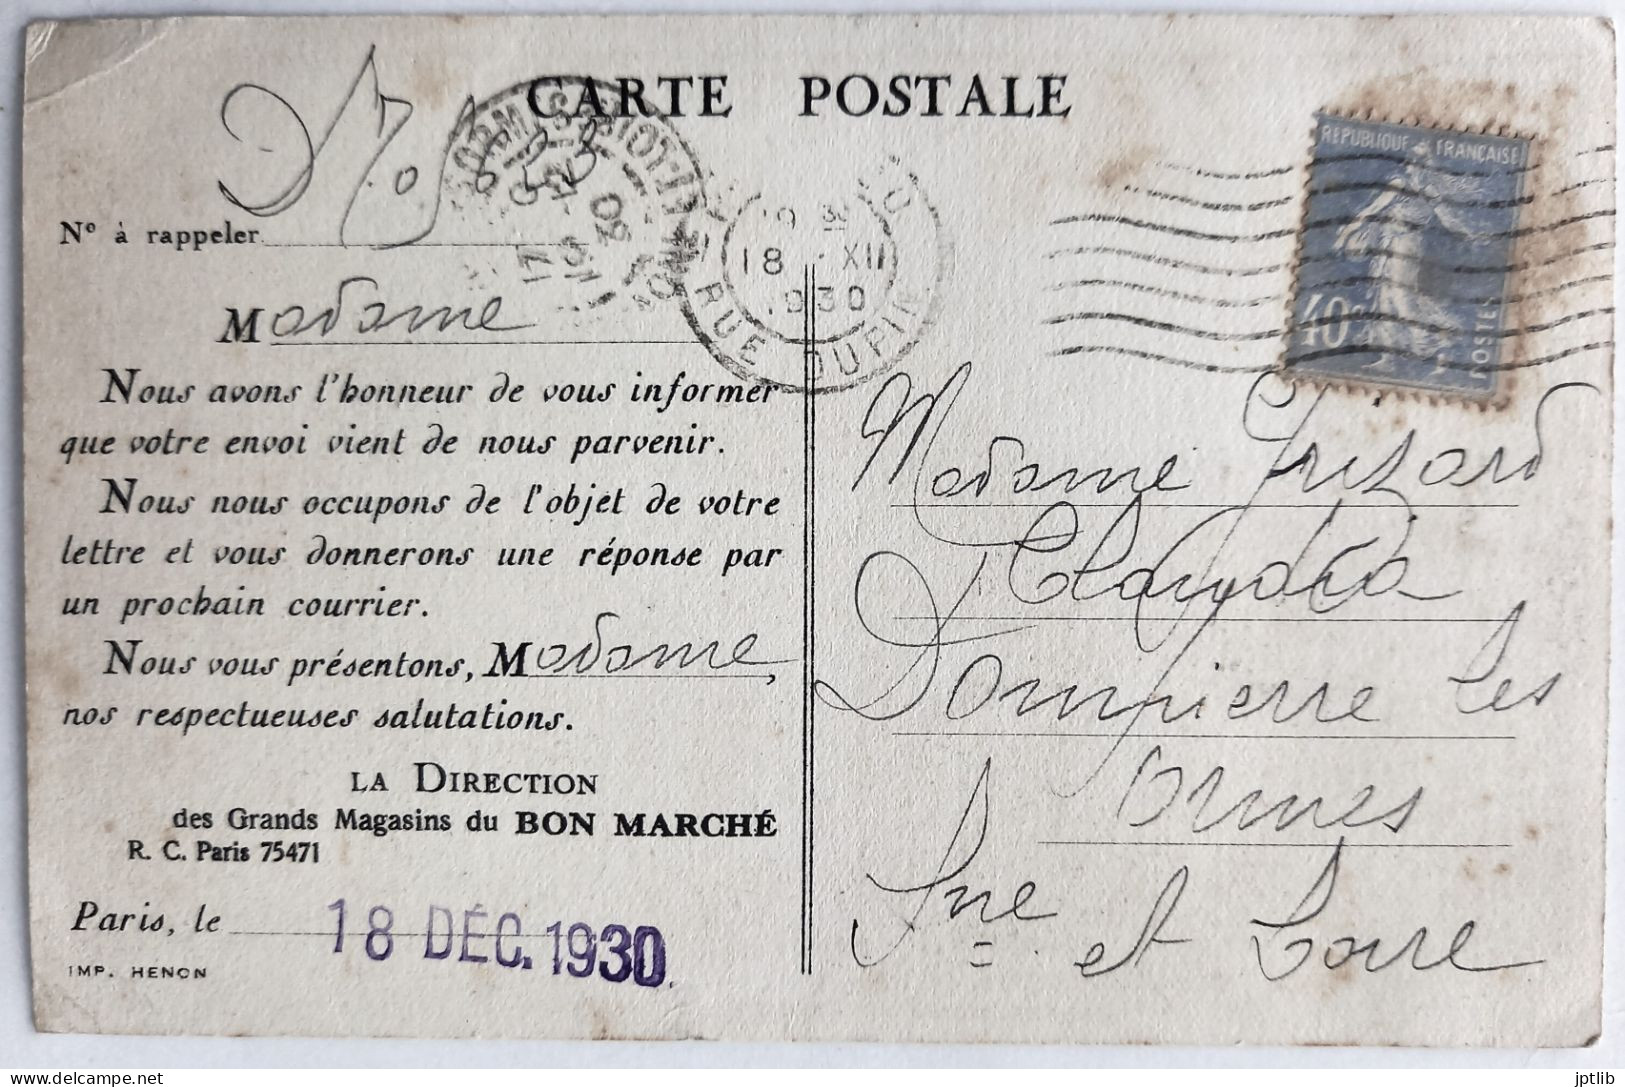 CARTE POSTALE
N° à rappeler
Madame
Nous avons l'honneur de vous informer
que votre envoi vient de nous parvenir.
Nous nous occupons de l'objet de votre
lettre et vous donnerons une réponse par
un prochain courrier.
Nous vous présentons, Madame,
nos respectueuses salutations.
LA DIRECTION
des Grands Magasins du BON MARCHÉ
R. C. Paris 75471
Paris, le 18 DÉC. 1930
IMP. HENON
18 XII
1930
RUE DUPIN
REPUBLIQUE FRANÇAISE
40c
POSTES
Madame Grizard
Claudia
Dompierre les
Ormes
Sne et Loire
delcampe.net
jptlib